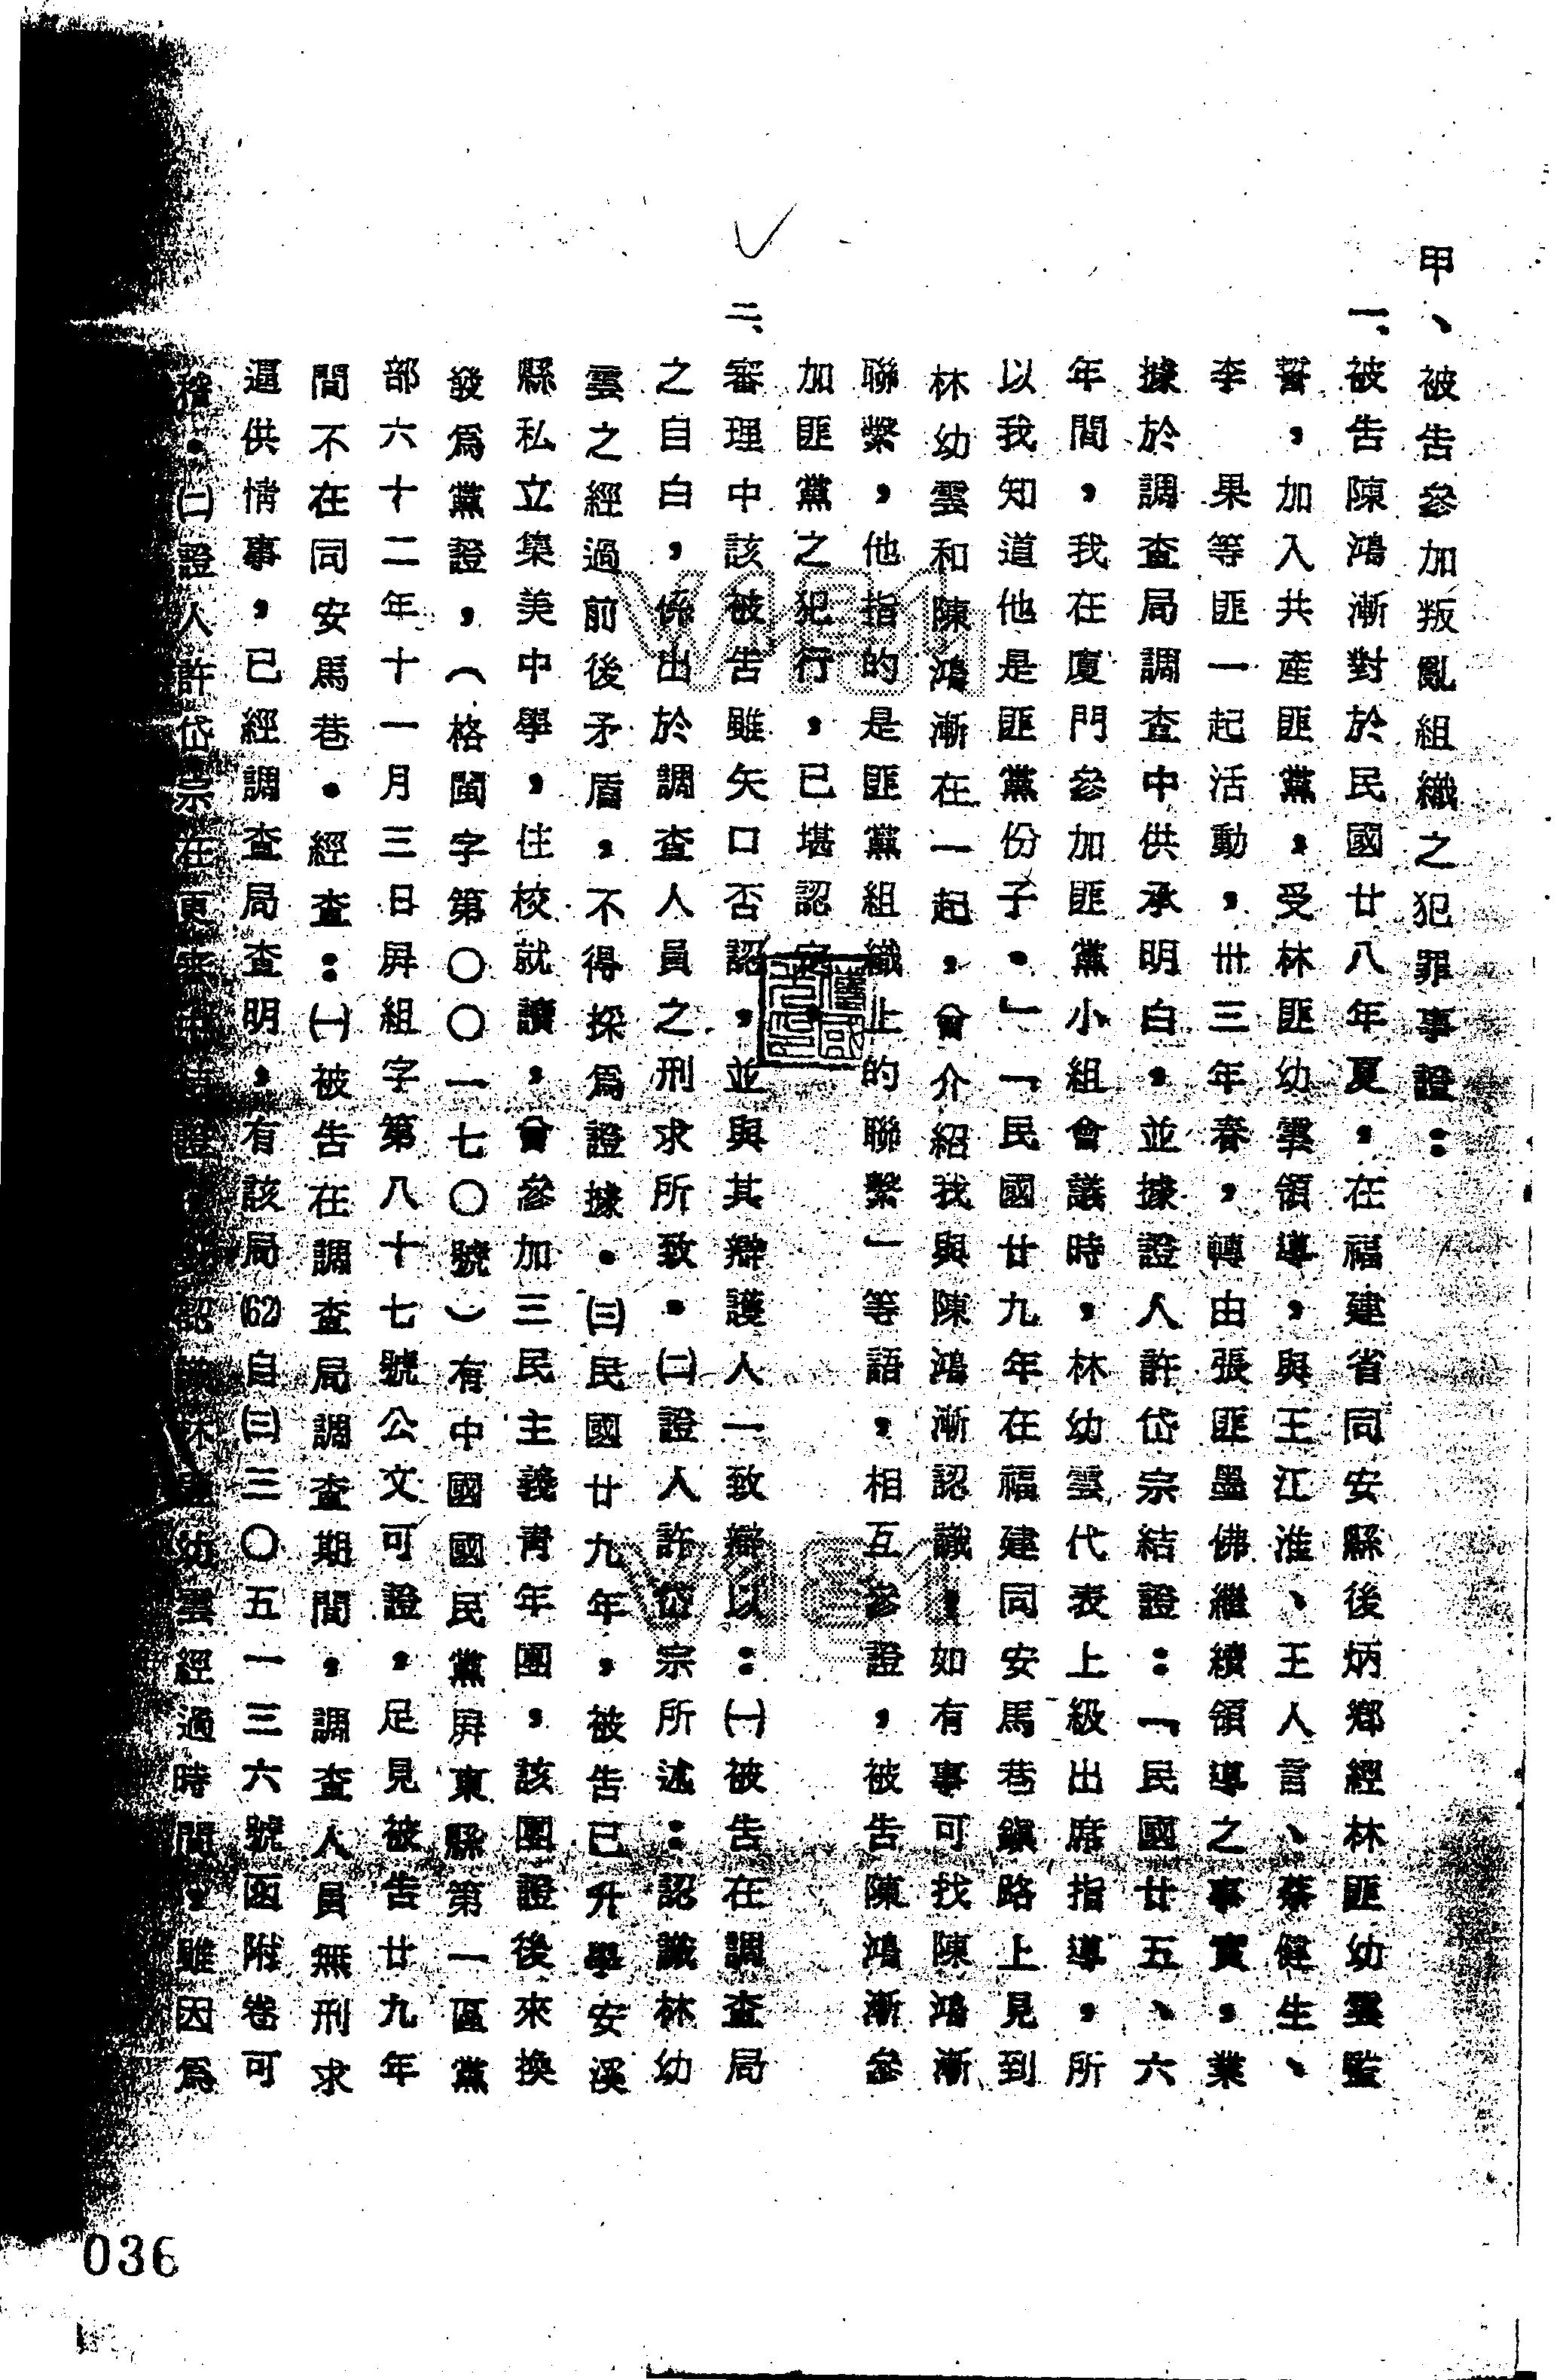 甲、被告參加叛亂組織之犯罪事證：
一、被告陳鴻漸對於民國廿八年夏，在福建省同安縣後炳鄉經林匪幼雲監
誓，加入共產匪黨，受林匪幼雲領導，與王江淮、王人言、蔡健生、
李　果等匪一起活動，卅三年春，轉由張匪墨佛繼續領導之事實，業
據於調查局調查中供承明白，並據證人許岱宗結證：「民國廿五、六
年間，我在廈門參加匪黨小組會議時，林幼雲代表上級出席指導，所
以我知道他是匪黨份子。」「民國廿九年在福建同安馬巷鎮路上見到
林幼雲和陳鴻漸在一起，會介紹我與陳鴻漸認識，如有事可找陳鴻漸
聯繫，他指的是匪黨組織上的聯繫」等語。相互參證，被告陳鴻漸參
加匪黨之犯行，已堪認定。
二、審理中該被告雖矢口否認，並與其辯護人一致辯以：㈠被告在調查局
之自白，係出於調查人員之刑求所致。㈡證人許岱宗所述：認識林幼
雲之經過前後矛盾，不得採為證據。㈢民國廿九年，被告已升學安溪
縣私立集美中學，住校就讀，會參加三民主義青年團，該團證後來換
發為黨證，（格閩字第〇〇一七〇號）有中國國民黨屏東縣第一區黨
部六十二年十一月三日屏組字第八十七號公文可證，足見被告廿九年
間不在同安馬巷。經查：㈠被告在調查局調查期間，調查人員無刑求
逼供情事，已經調查局查明，有該局(62)自㈢三〇五一三六號函附卷可
稽。㈡證人許岱宗在更審中 證， 認識林 幼雲經過時間，雖因為
036